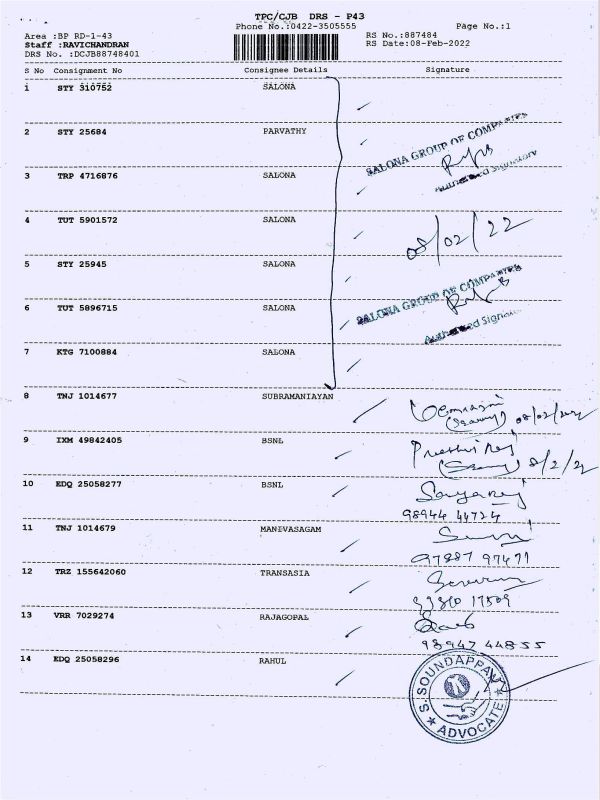 TPC/CJB DRS - P43
Phone No.:0422-3505555 Page No.:1
Area :BP RD-1-43 RS No.:887484
Staff :RAVICHANDRAN RS Date:08-Feb-2022
DRS No. :DCJB88748401
S No Consignment No Consignee Details Signature
1 STY 310752 SALONA
2 STY 25684 PARVATHY
SALONA GROUP OF COMPANIES
3 TRP 4716876 SALONA
Authorised Signatory
4 TUT 5901572 SALONA
08/02/22
5 STY 25945 SALONA
SALONA GROUP OF COMPANIES
6 TUT 5896715 SALONA
Authorised Signatory
7 KTG 7100884 SALONA
8 TNJ 1014677 SUBRAMANIAYAN
08/02/2022
9 IXM 49842405 BSNL
8/2/22
10 EDQ 25058277 BSNL
98944 44724
11 TNJ 1014679 MANIVASAGAM
97887 97471
12 TRZ 155642060 TRANSASIA
17509
13 VRR 7029274 RAJAGOPAL
98947 44855
14 EDQ 25058296 RAHUL
S. SOUNDAPPAN
ADVOCATE